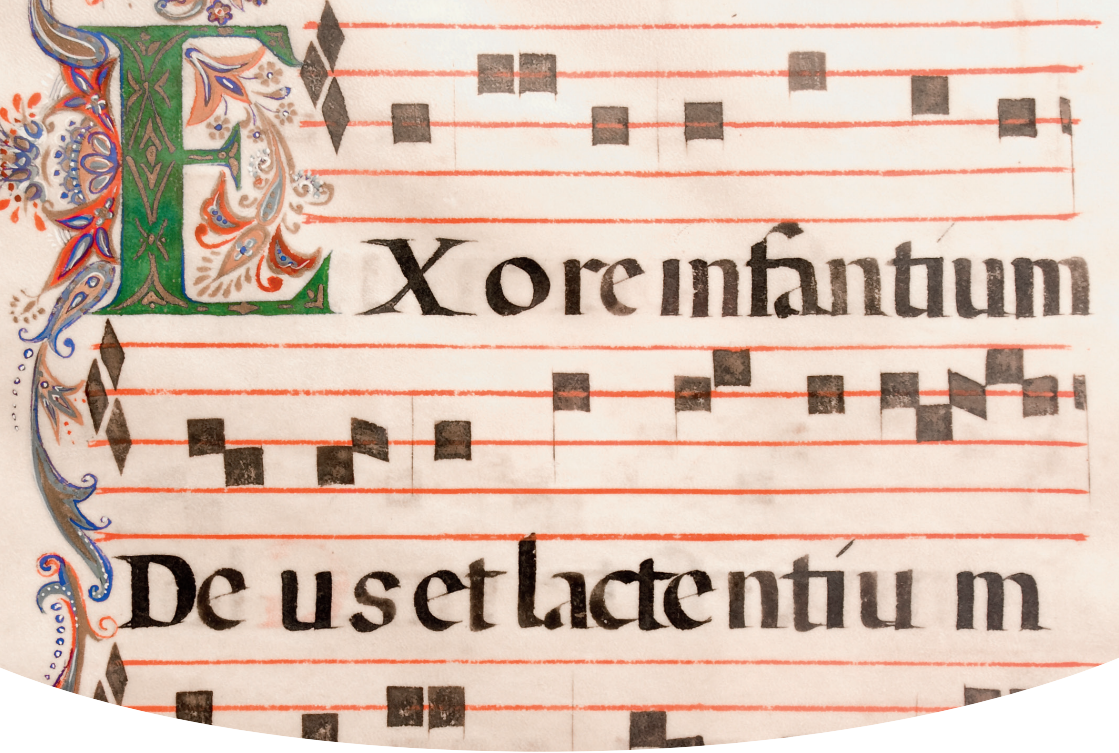 EX ore infantium
Deus et lactentium